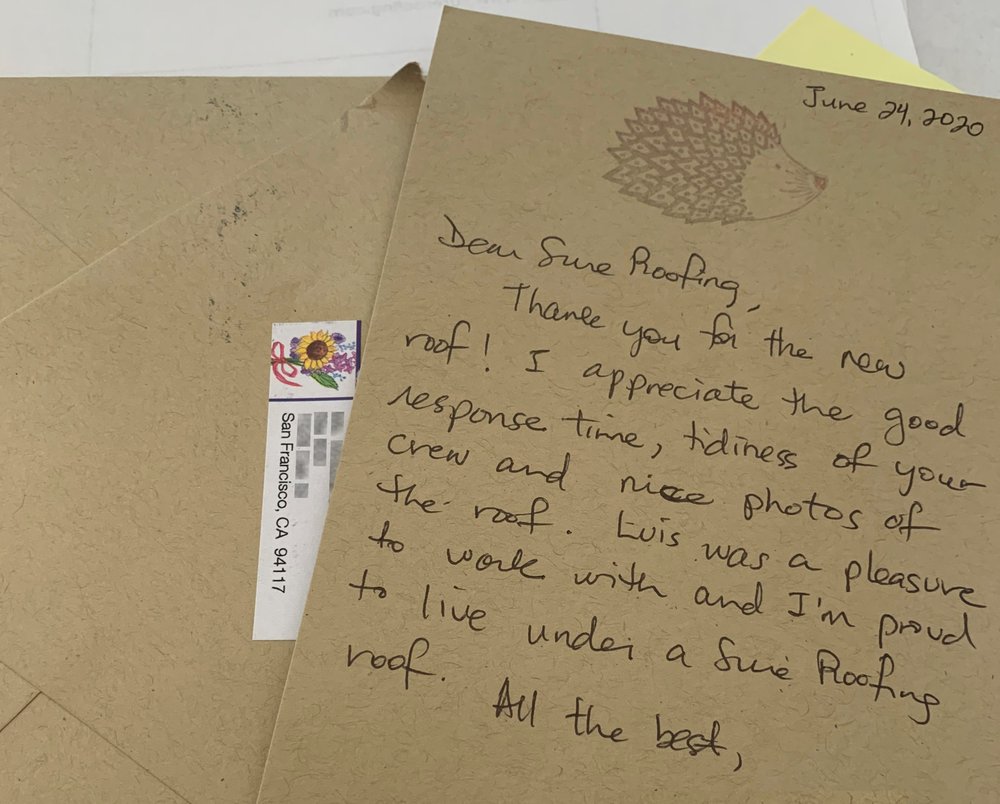 June 24, 2020
Dear Sure Roofing,
Thank you for the new
roof! I appreciate the good
response time, tidiness of your
crew and nice photos of
the roof. Luis was a pleasure
to work with and I'm proud
to live under a Sure Roofing
roof.
All the best,
San Francisco, CA 94117